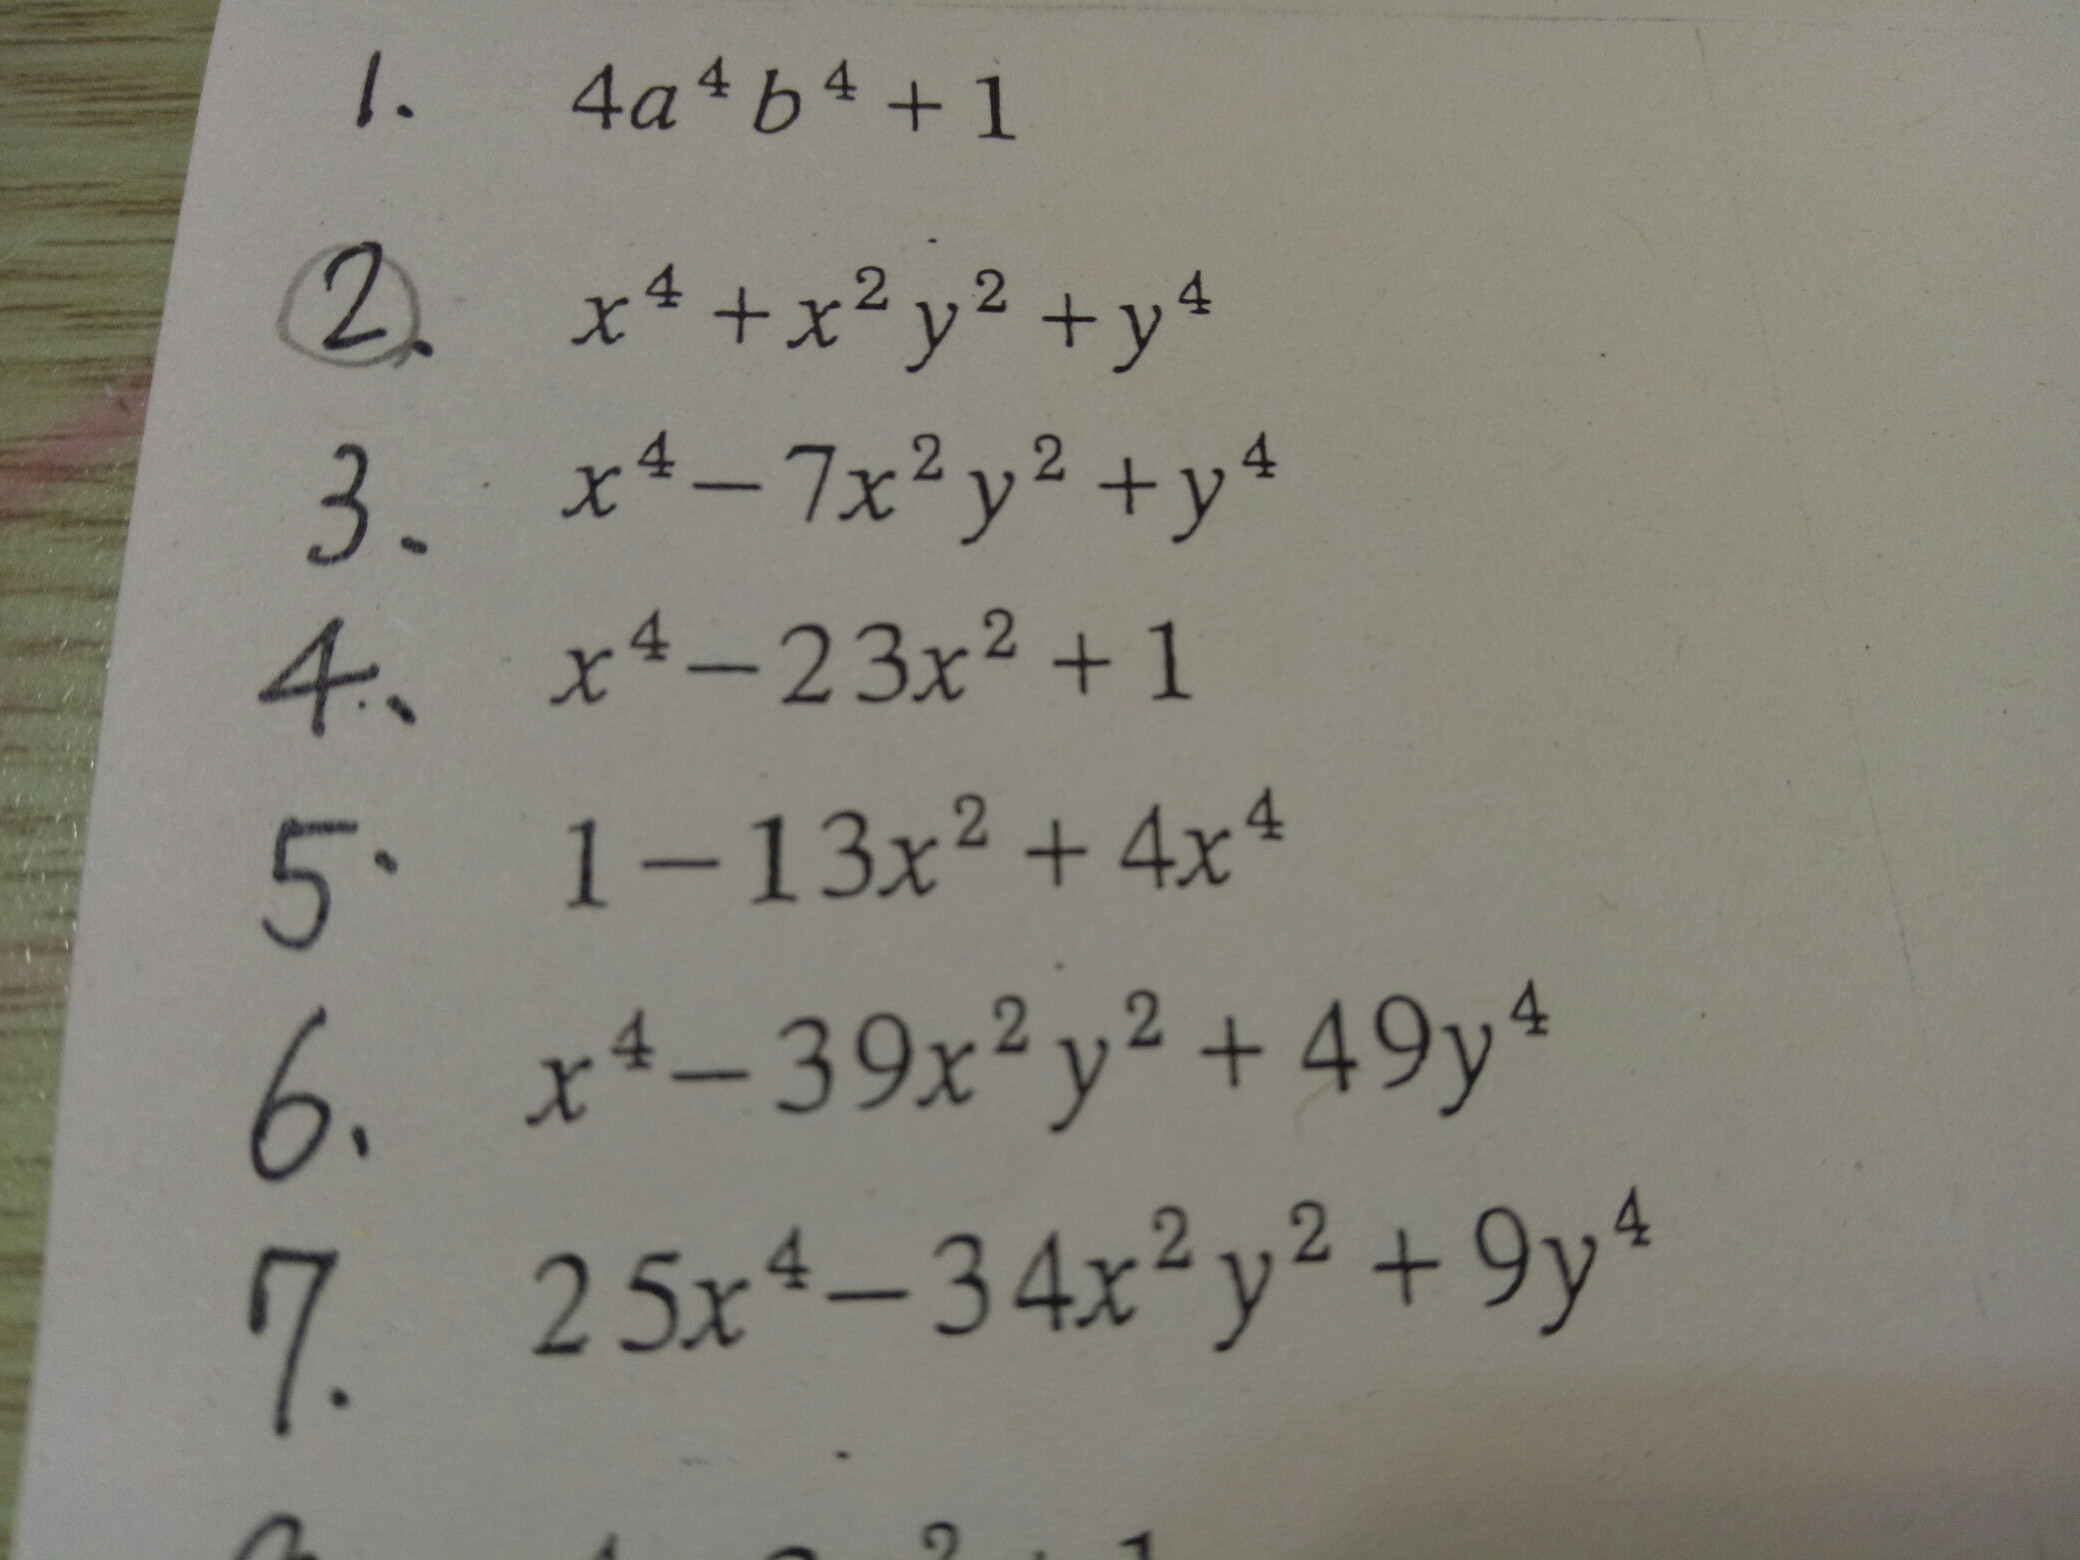 1. 4a⁴b⁴+1
2. x⁴+x²y²+y⁴
3. x⁴−7x²y²+y⁴
4. x⁴−23x²+1
5. 1−13x²+4x⁴
6. x⁴−39x²y²+49y⁴
7. 25x⁴−34x²y²+9y⁴